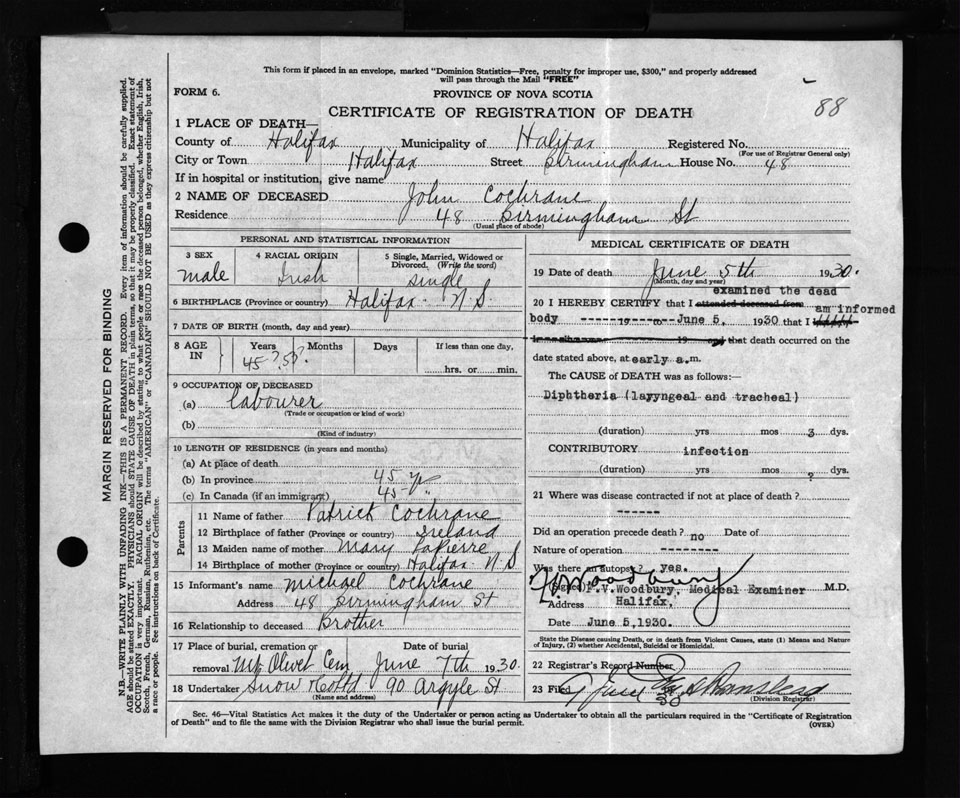 This form if placed in an envelope, marked "Dominion Statistics—Free, penalty for improper use, $300," and properly addressed
will pass through the Mail "FREE"
FORM 6.
PROVINCE OF NOVA SCOTIA
88
CERTIFICATE OF REGISTRATION OF DEATH
1 PLACE OF DEATH—
County of Halifax Municipality of Halifax Registered No.
(For use of Registrar General only)
City or Town Halifax Street Birmingham House No. 48
If in hospital or institution, give name
2 NAME OF DECEASED John Cochrane
Residence 48 Birmingham St
(Usual place of abode)
PERSONAL AND STATISTICAL INFORMATION
3 SEX 4 RACIAL ORIGIN 5 Single, Married, Widowed or
Divorced. (Write the word)
male Irish single
6 BIRTHPLACE (Province or country) Halifax N.S.
7 DATE OF BIRTH (month, day and year)
8 AGE IN Years Months Days If less than one day,
45?.50?. hrs. or min.
9 OCCUPATION OF DECEASED
(a) labourer
(Trade or occupation or kind of work)
(b)
(Kind of industry)
10 LENGTH OF RESIDENCE (in years and months)
(a) At place of death
(b) In province 45 yr
(c) In Canada (if an immigrant) 45 "
Parents
11 Name of father Patrick Cochrane
12 Birthplace of father (Province or country) Ireland
13 Maiden name of mother Mary LaPierre
14 Birthplace of mother (Province or country) Halifax N.S
15 Informant's name Michael Cochrane
Address 48 Birmingham St
16 Relationship to deceased Brother
17 Place of burial, cremation or Date of burial
removal Mt Olivet Cem June 7th 1930
18 Undertaker Snow & Co Ltd 90 Argyle St
(Name and address)
MEDICAL CERTIFICATE OF DEATH
19 Date of death June 5th 1930.
(Month, day and year)
examined the dead
20 I HEREBY CERTIFY that I attended deceased from
am informed
body ---------19-----to--June 5, 1930 that I
19 and that death occurred on the
date stated above, at early a.m.
The CAUSE of DEATH was as follows:—
Diphtheria (layyngeal and tracheal)
(duration) yrs mos 3 dys.
CONTRIBUTORY infection
(duration) yrs mos ? dys.
21 Where was disease contracted if not at place of death?
------
Did an operation precede death? no Date of
Nature of operation --------
Was there an autopsy? yes.
(Signed) P.V.Woodbury, Medical Examiner M.D.
Address Halifax,
Date June 5,1930.
State the Disease causing Death, or in death from Violent Causes, state (1) Means and Nature
of Injury, (2) whether Accidental, Suicidal or Homicidal.
22 Registrar's Record Number
23 Filed June 30
(Division Registrar)
Sec. 46—Vital Statistics Act makes it the duty of the Undertaker or person acting as Undertaker to obtain all the particulars required in the "Certificate of Registration
of Death" and to file the same with the Division Registrar who shall issue the burial permit. (OVER)
MARGIN RESERVED FOR BINDING
N.B.—WRITE PLAINLY WITH UNFADING INK—THIS IS A PERMANENT RECORD. Every item of information should be carefully supplied.
AGE should be stated EXACTLY. PHYSICIANS should STATE CAUSE OF DEATH in plain terms, so that it may be properly classified. Exact statement of
OCCUPATION is very important. RACIAL ORIGIN will be described by stating to what people or race the deceased person belonged, whether English, Irish,
Scotch, French, German, Russian, Ruthenian, etc. The terms "AMERICAN" or "CANADIAN" SHOULD NOT BE USED as they express citizenship but not
a race or people. See instructions on back of Certificate.